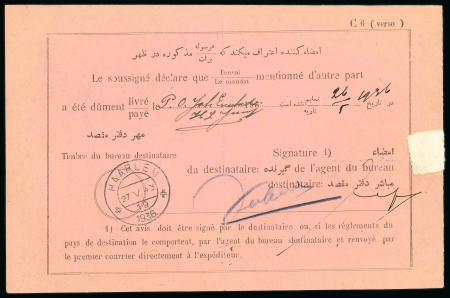 C 6 (verso)
امضاء کننده اعتراف میکند که مرسوله / برات مذکوره در ظهر
Le soussigné déclare que l'envoi / Le mandat mentionné d'autre part
a été dûment livré / payé le 26/5 1936 در تاریخ
مهر دفتر مقصد
Timbre du bureau destinataire
Signature 1) امضاء
du destinataire: گیرنده de l'agent du bureau
destinataire: مباشر دفتر مقصد
HAARLEM
27 V
19
1936
1) Cet avis doit être signé par le destinataire ou, si les règlements du
pays de destination le comportent, par l'agent du bureau destinataire et renvoyé par
le premier courrier directement à l'expéditeur.